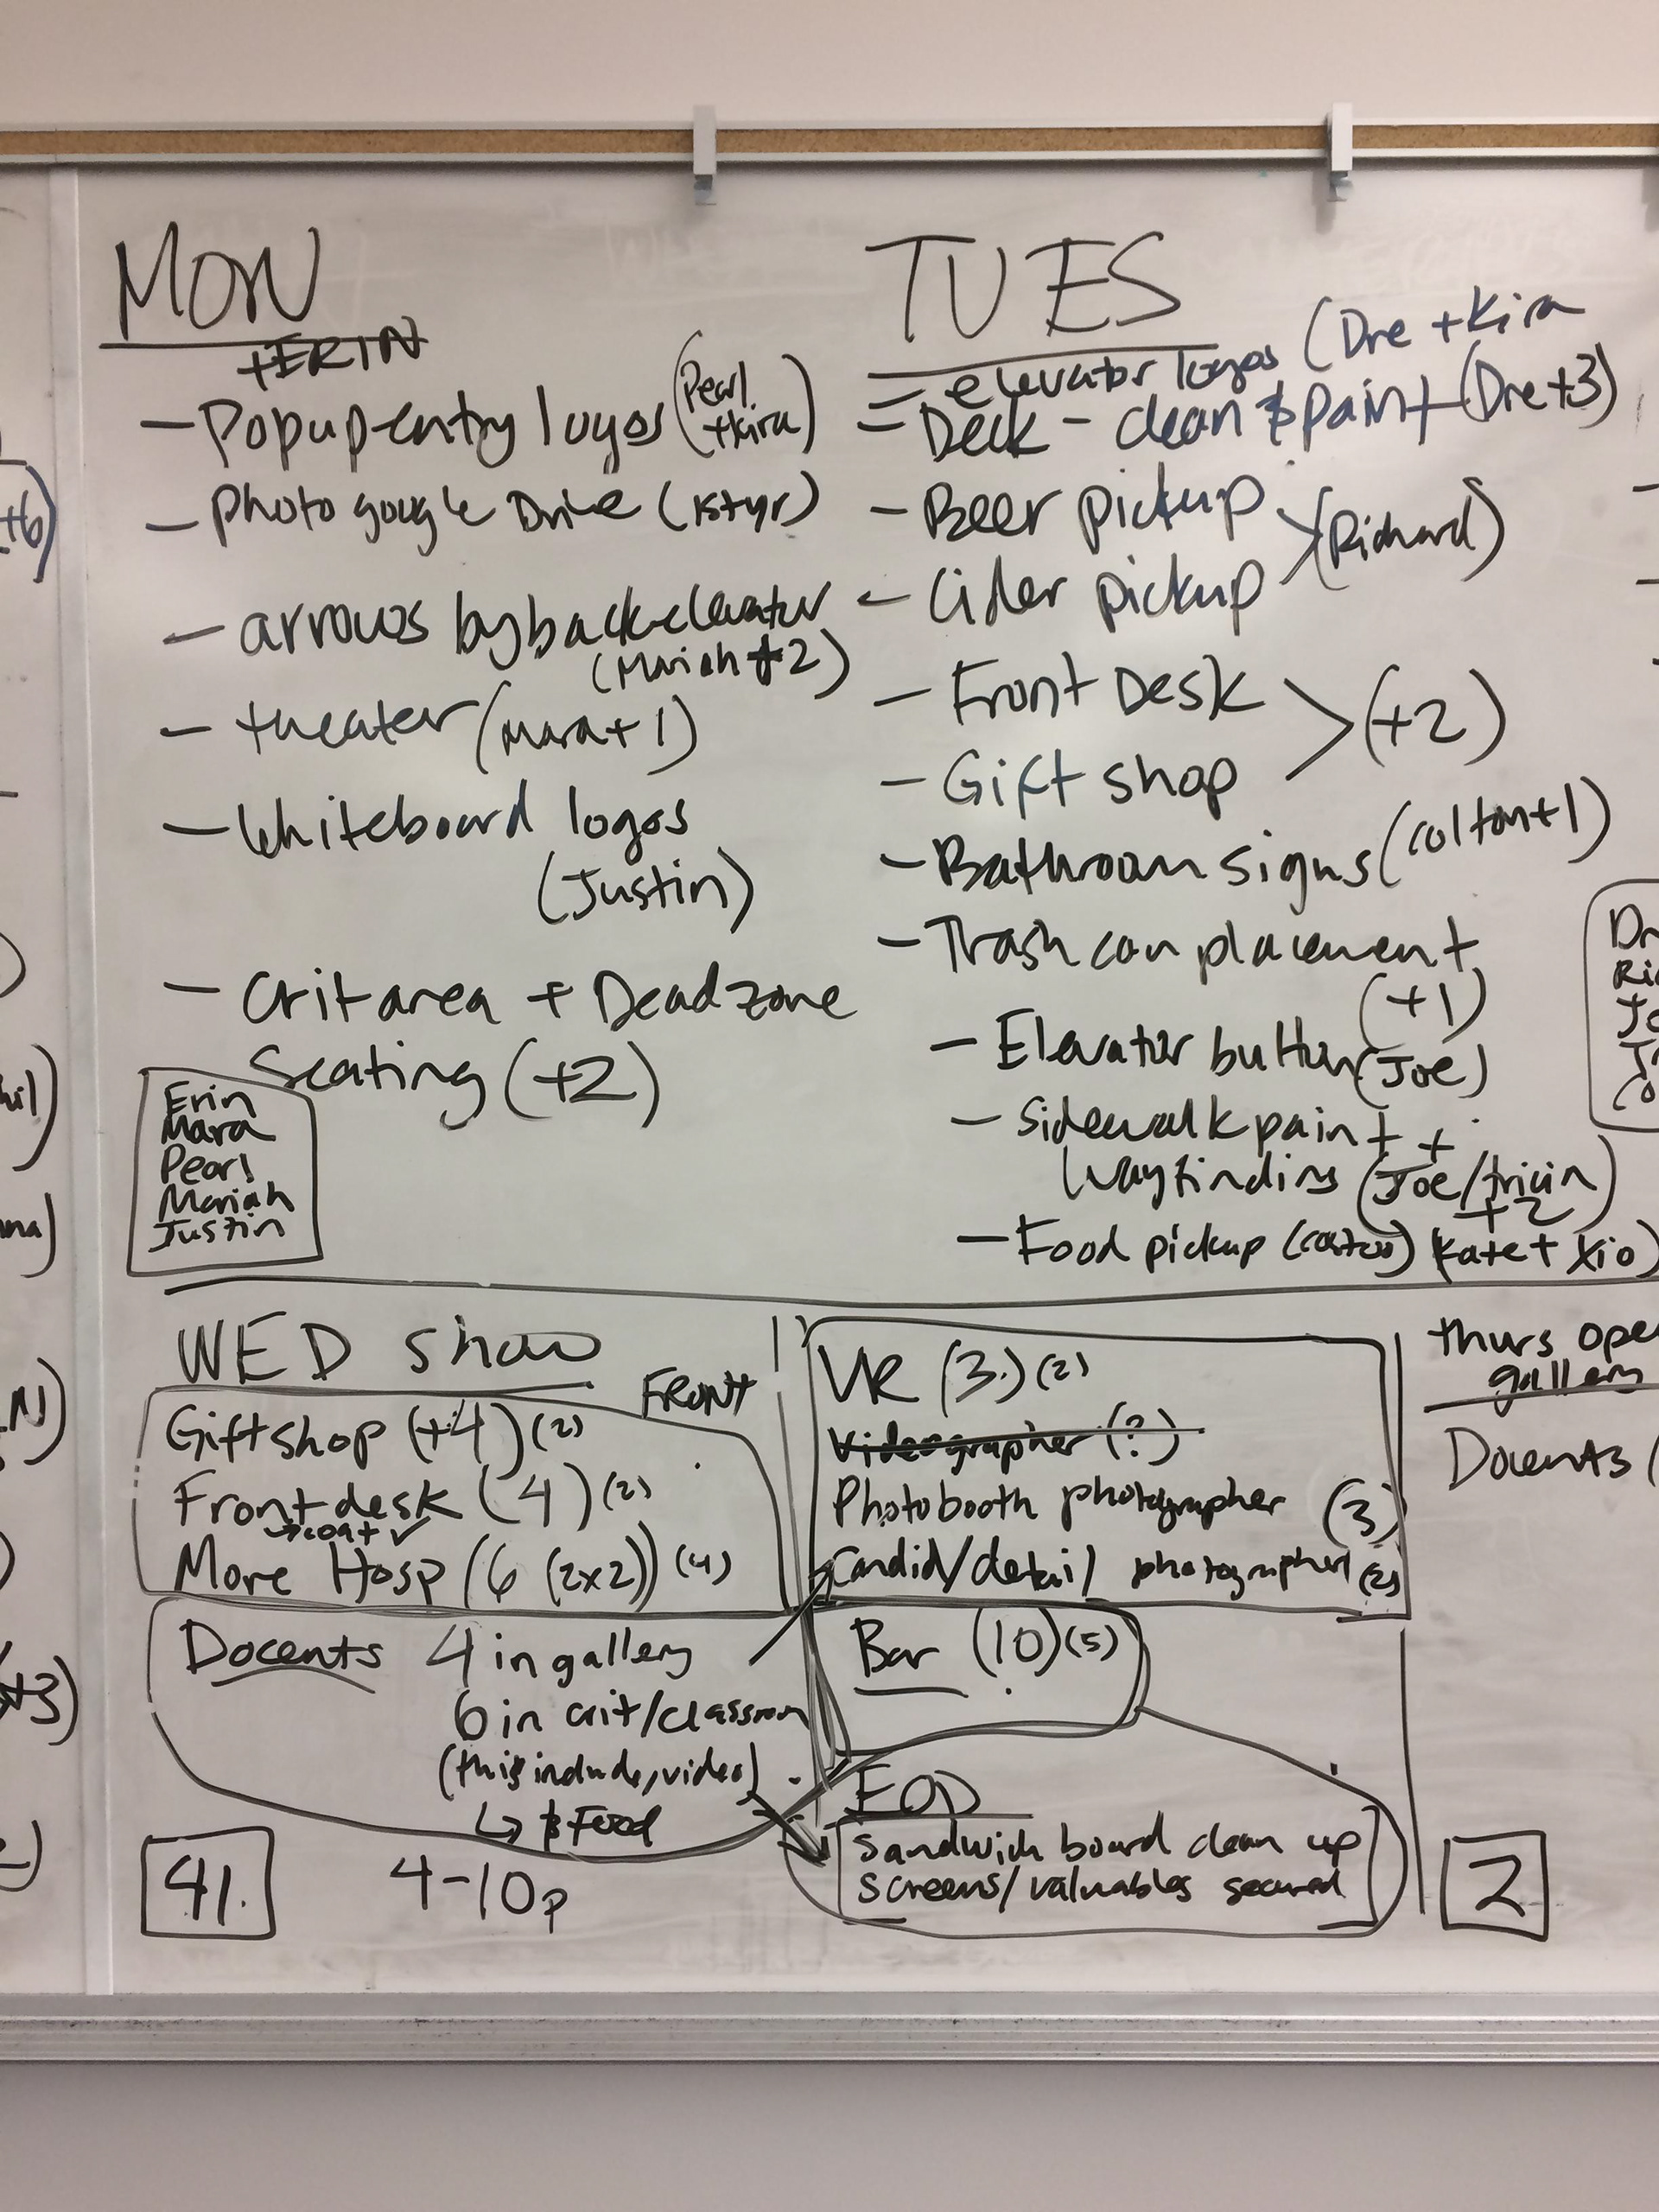 MON
+ERIN
– Popup-entry logos (Pearl +Kira)
– Photo google Drive (1styr)
– arrows by back elevator
(Mariah +2)
– theater (Mara +1)
– Whiteboard logos
(Justin)
– Crit area + Dead zone
Seating (+2)
Erin
Mara
Pearl
Mariah
Justin
TUES
– elevator logos (Dre + Kira
– Deck – clean & paint (Dre +3)
– Beer pickup
(Richard)
– Cider pickup
– Front Desk
(+2)
– Gift shop
– Bathroom signs (Colton +1)
– Trash can placement
(+1)
– Elevator button (Joe)
– Sidewalk paint +
Wayfinding (Joe/tricia)
+2
– Food pickup (costco) (Kate + Xio)
WED show
FRONT
Gift shop (+4) (2)
Front desk (4) (2)
→ coat ✓
More Hosp (6 (2x2)) (4)
Docents 4 in gallery
6 in crit/classroom
(this includes video)
↳ & Food
41.
4-10p
VR (3.) (2)
Videographer (?)
Photobooth photographer (3)
Candid/detail photographer (2)
Bar (10) (5)
EOD
Sandwich board clean up
Screens/valuables secured
thurs ope
gallery
Docents (
2
+6)
+3)
Dr
Ric
Jo
Co